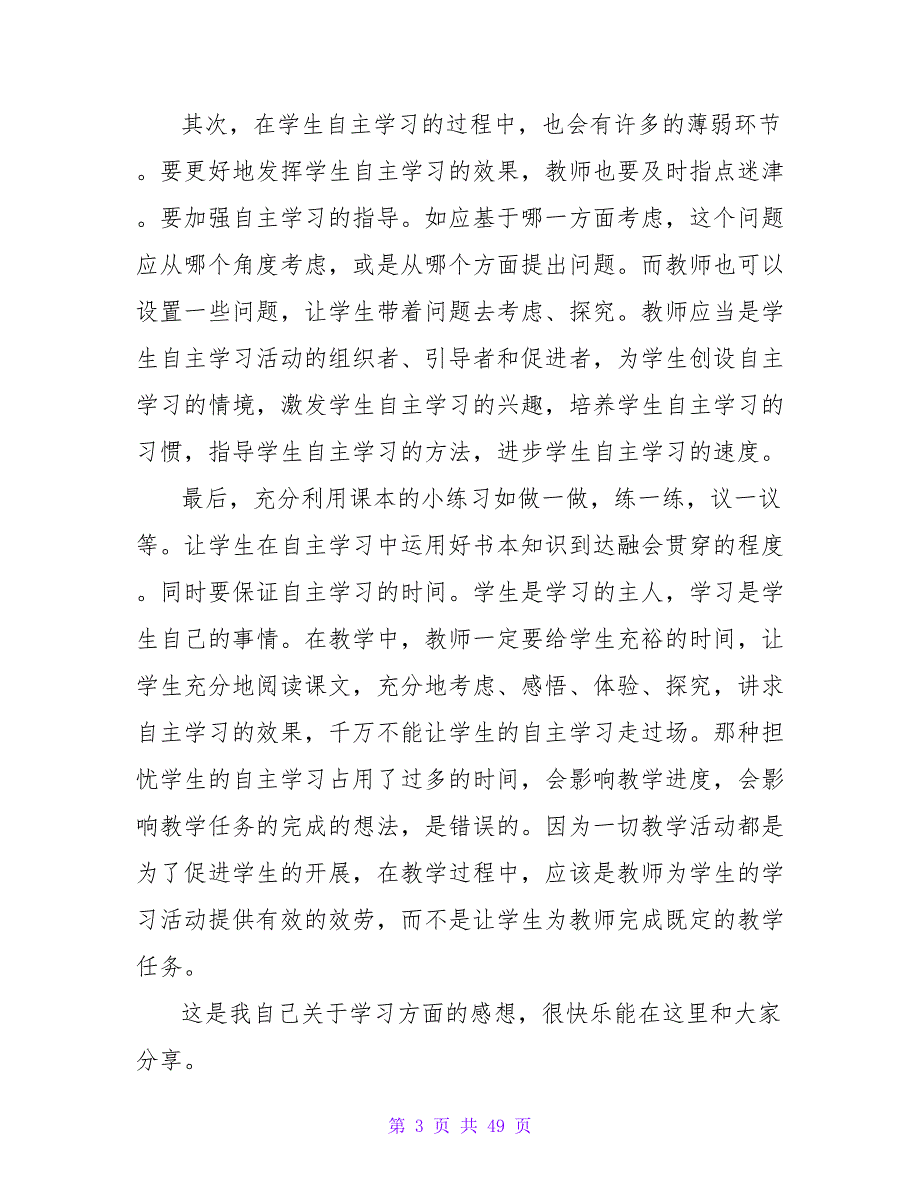 其次，在学生自主学习的过程中，也会有许多的薄弱环节
。要更好地发挥学生自主学习的效果，教师也要及时指点迷津
。要加强自主学习的指导。如应基于哪一方面考虑，这个问题
应从哪个角度考虑，或是从哪个方面提出问题。而教师也可以
设置一些问题，让学生带着问题去考虑、探究。教师应当是学
生自主学习活动的组织者、引导者和促进者，为学生创设自主
学习的情境，激发学生自主学习的兴趣，培养学生自主学习的
习惯，指导学生自主学习的方法，进步学生自主学习的速度。
最后，充分利用课本的小练习如做一做，练一练，议一议
等。让学生在自主学习中运用好书本知识到达融会贯穿的程度
。同时要保证自主学习的时间。学生是学习的主人，学习是学
生自己的事情。在教学中，教师一定要给学生充裕的时间，让
学生充分地阅读课文，充分地考虑、感悟、体验、探究，讲求
自主学习的效果，千万不能让学生的自主学习走过场。那种担
忧学生的自主学习占用了过多的时间，会影响教学进度，会影
响教学任务的完成的想法，是错误的。因为一切教学活动都是
为了促进学生的开展，在教学过程中，应该是教师为学生的学
习活动提供有效的效劳，而不是让学生为教师完成既定的教学
任务。
这是我自己关于学习方面的感想，很快乐能在这里和大家
分享。
第 3 页 共 49 页